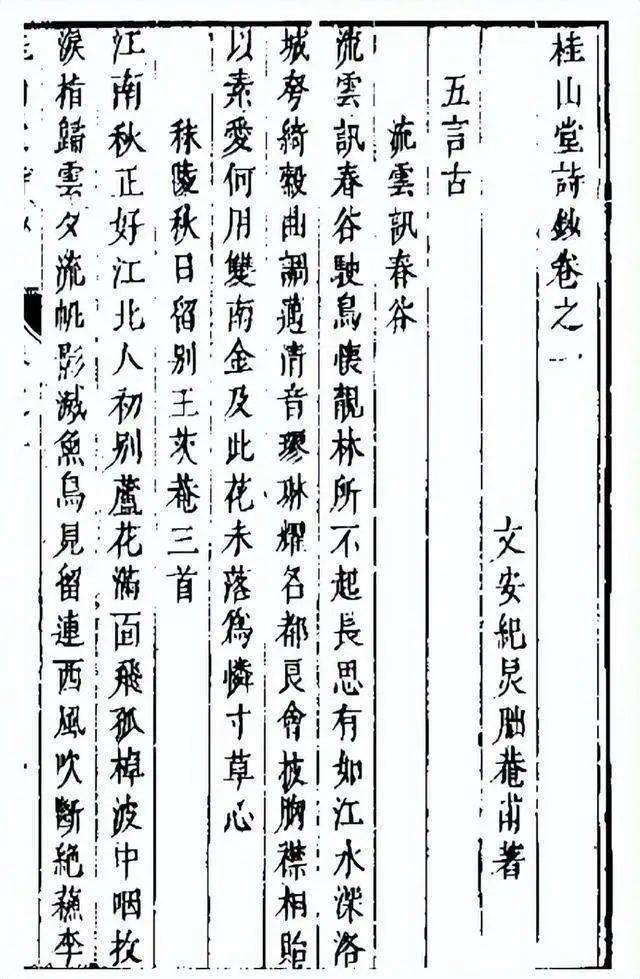 桂山堂詩鈔卷之一
文安紀炅朏菴甫著
五言古
流雲訊春谷
流雲訊春谷駛鳥懷靚林所不起長思有如江水深洛
城夸綺縠曲調邁清音璆琳耀名都良會披胸襟相貽
以素愛何用雙南金及此花未落爲憐寸草心
秣陵秋日留别王茨菴三首
江南秋正好江北人初别蘆花滿面飛孤棹波中咽故
淚楷歸雲夕流帆影滅魚鳥見留連西風吹斷絕蘓李